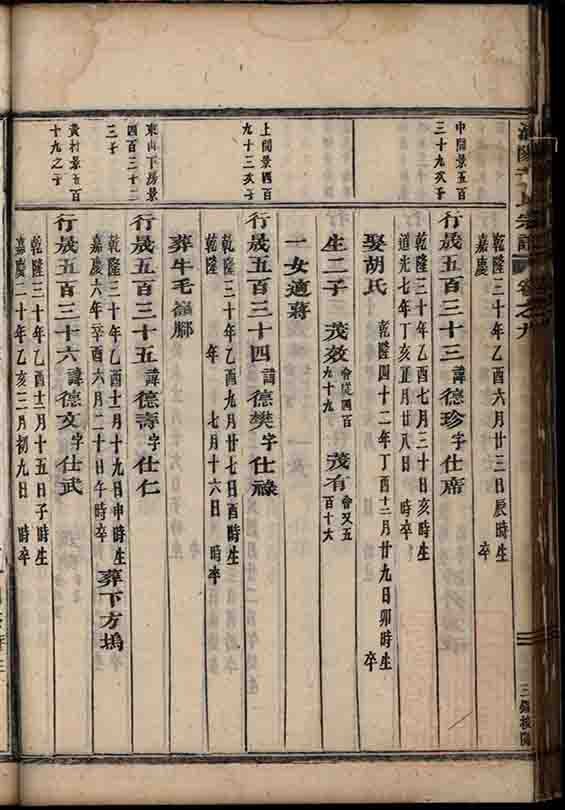 宗譜
卷之九
乾隆三十年乙酉六月廿三日辰時生
嘉慶 卒
中間景五百
三十九次子
行晟五百三十三諱德珍字仕席
乾隆三十年乙酉七月三十日亥時生
道光七年丁亥正月廿八日 時卒
娶胡氏
乾隆四十二年丁酉十二月廿九日卯時生
卒
生二子 茂效 會從四百九十九 茂有 會又五百十六
一女適蔣
上間景四百
九十三次子
行晟五百三十四諱德樊字仕祿
乾隆三十年乙酉九月廿七日酉時生
乾隆 年 七月十六日 時卒
葬牛毛嶺腳
東山下房景
四百三十二
三子
行晟五百三十五諱德壽字仕仁
乾隆三十年乙酉十一月十九日申時生
嘉慶六年辛酉六月二十日午時卒
葬下方塢
黃村景五百
十九之子
行晟五百三十六諱德文字仕武
乾隆三十年乙酉十二月十五日子時生
嘉慶二十年乙亥三月初九日 時卒